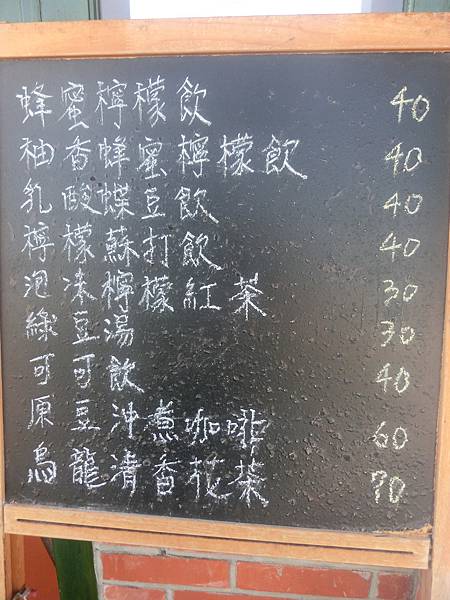 蜂蜜檸檬飲 40
柚香蜂蜜檸檬飲 40
乳酸蝶豆飲 40
檸檬蘇打飲 40
泡沫檸檬紅茶 30
綠豆湯 30
可可飲 40
原豆沖煮咖啡 60
烏龍清香花茶 70